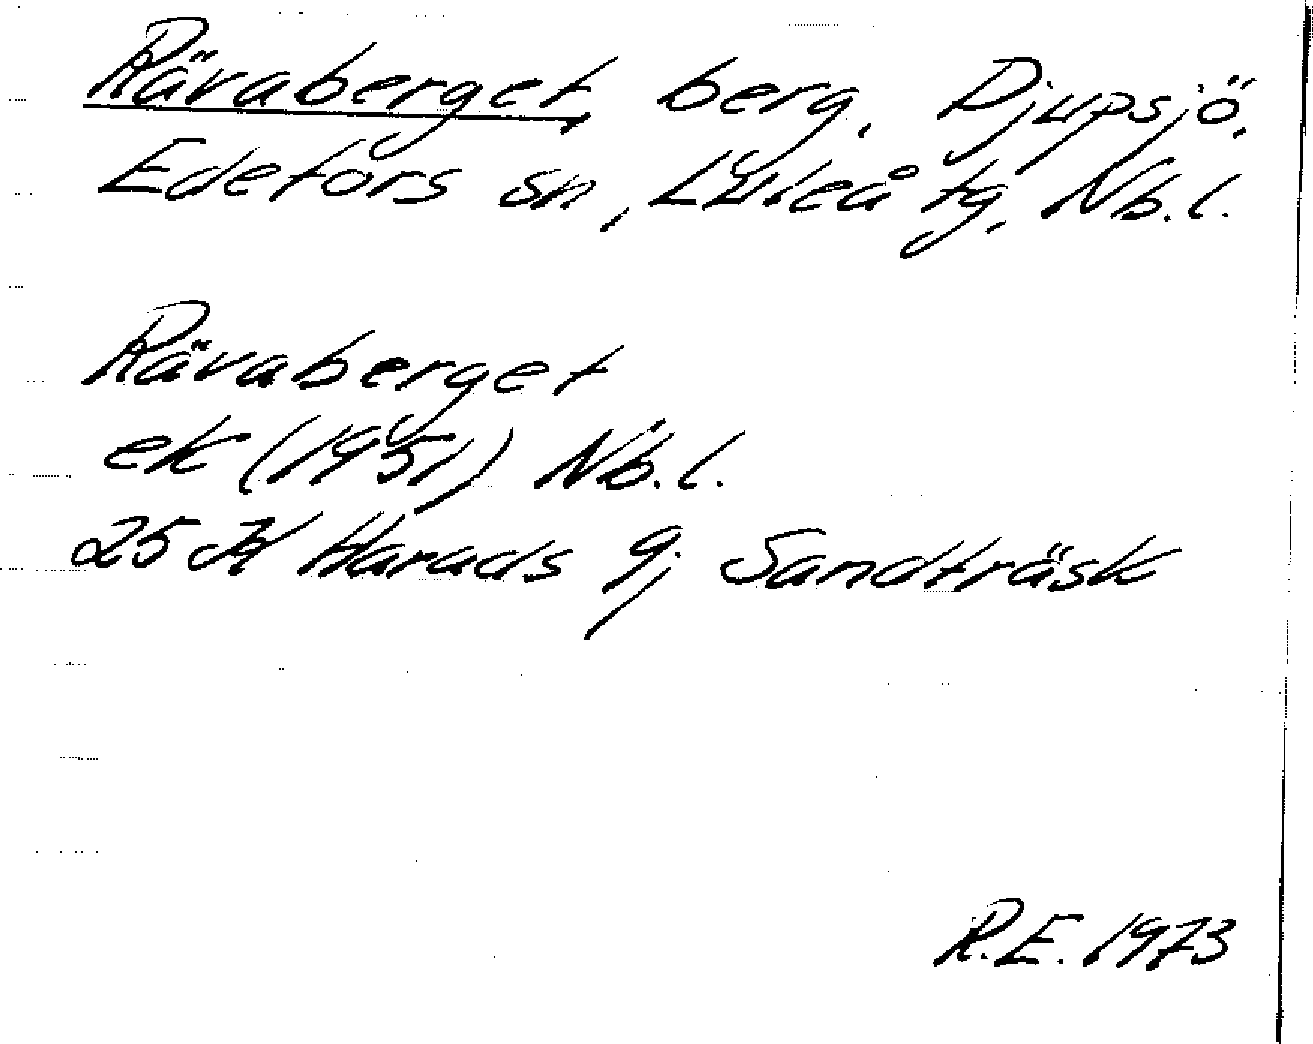 Rävaberget, berg, Djupsjö,
Edefors sn, Luleå tg, Nb.l.
Rävaberget
ek (1951) Nb.l.
25 K Harads 9j Sandträsk
R.E. 1973